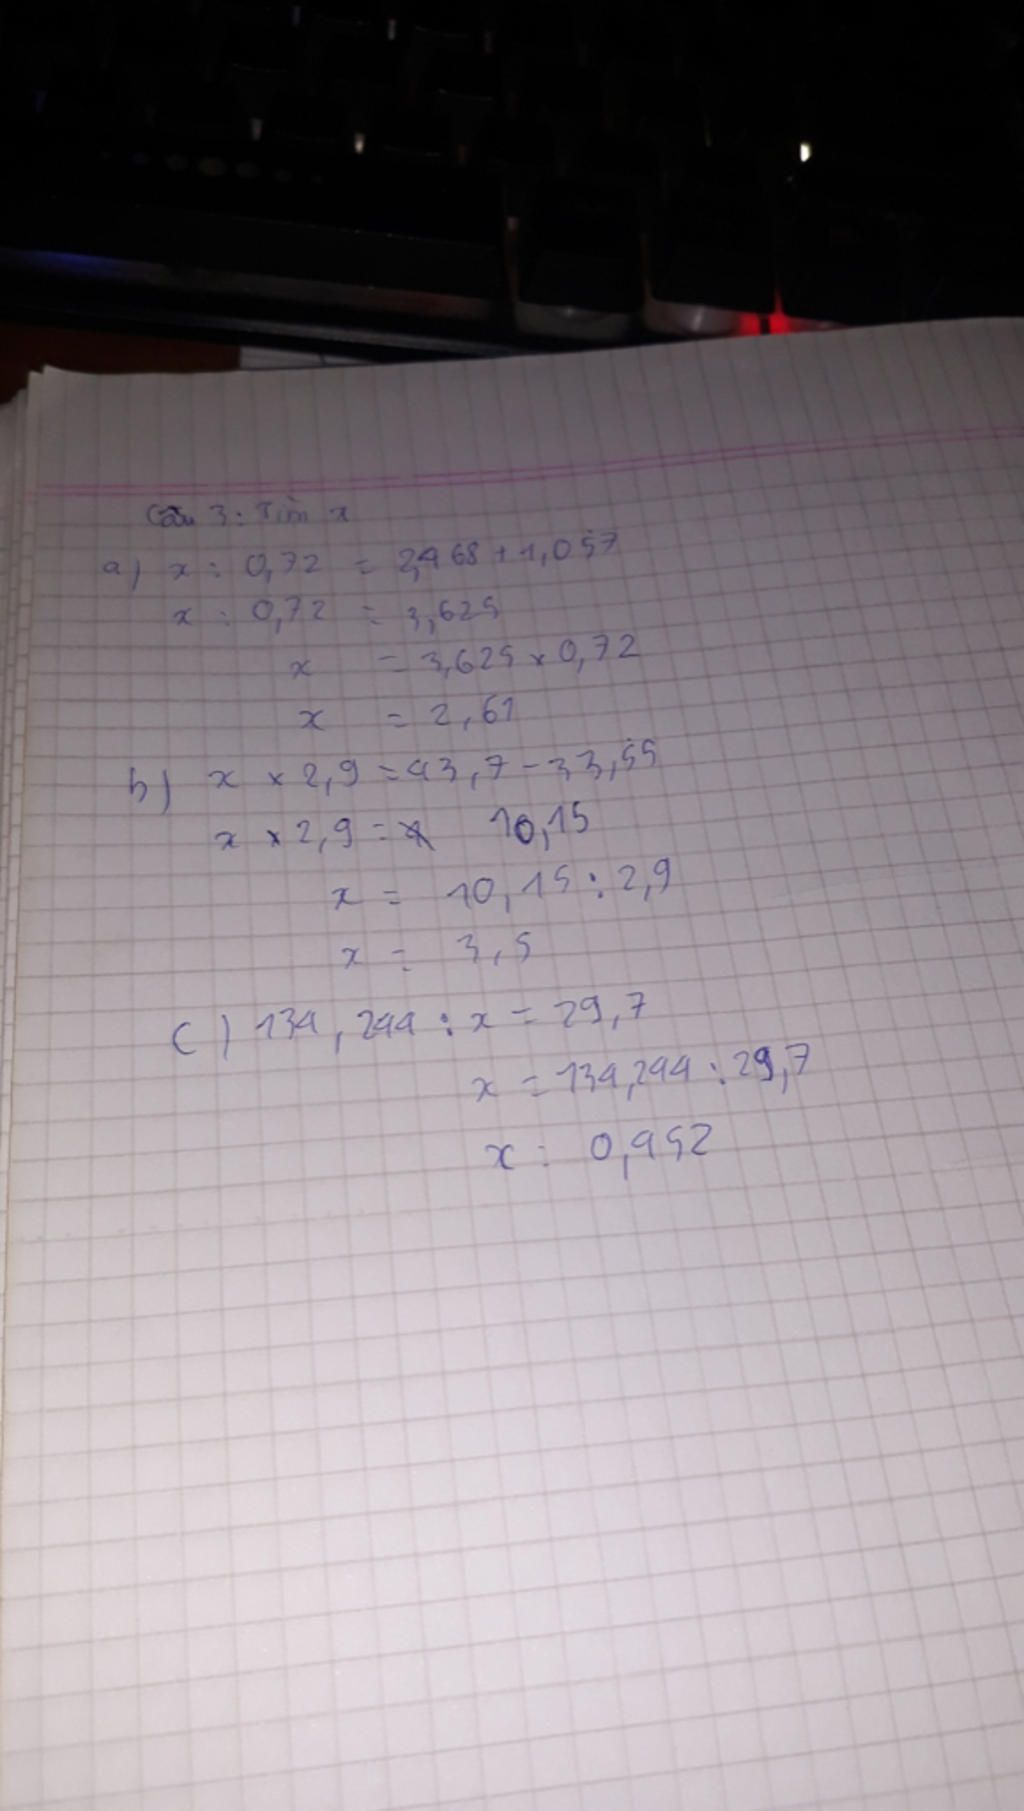 Câu 3: Tìm x
a) x : 0,72 = 2,468 + 1,057
x : 0,72 = 3,625
x = 3,625 x 0,72
x = 2,61
b) x x 2,9 = 43,7 - 33,55
x x 2,9 = 10,15
x = 10,15 : 2,9
x = 3,5
c) 134,244 : x = 29,7
x = 134,244 : 29,7
x = 0,452